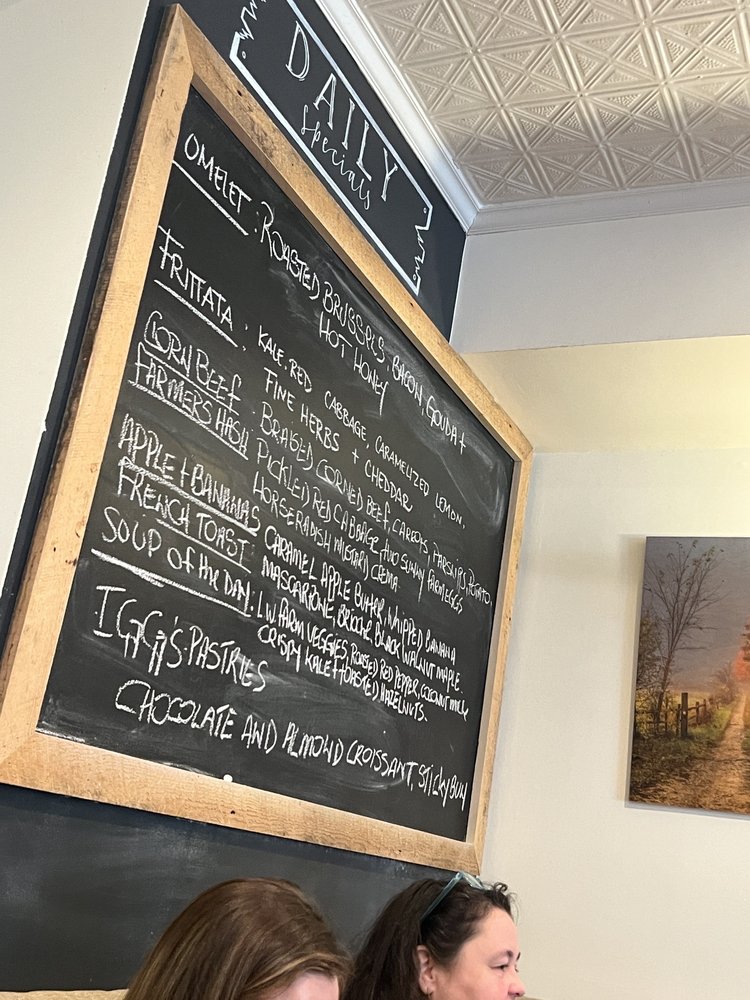 DAILY
Specials
OMELET: ROASTED BRUSSELS, BACON, GOUDA +
HOT HONEY
FRITTATA: KALE, RED CABBAGE, CARAMELIZED LEMON,
FINE HERBS + CHEDDAR
CORN BEEF
FARMERS HASH: BRAISED CORNED BEEF, CARROTS, PARSNIPS, POTATO,
PICKLED RED CABBAGE, TWO SUNNY FARM EGGS
HORSERADISH MUSTARD CREMA
APPLE + BANANAS
FRENCH TOAST: CARAMEL APPLE BUTTER, WHIPPED BANANA
MASCARPONE, BRIOCHE, BLACK WALNUT MAPLE.
SOUP OF the DAY: L.W. FARM VEGGIES, ROASTED RED PEPPER, COCONUT MILK
CRISPY KALE + TOASTED HAZELNUTS.
IGGI'S PASTRIES
CHOCOLATE AND ALMOND CROISSANT, STICKY BUN